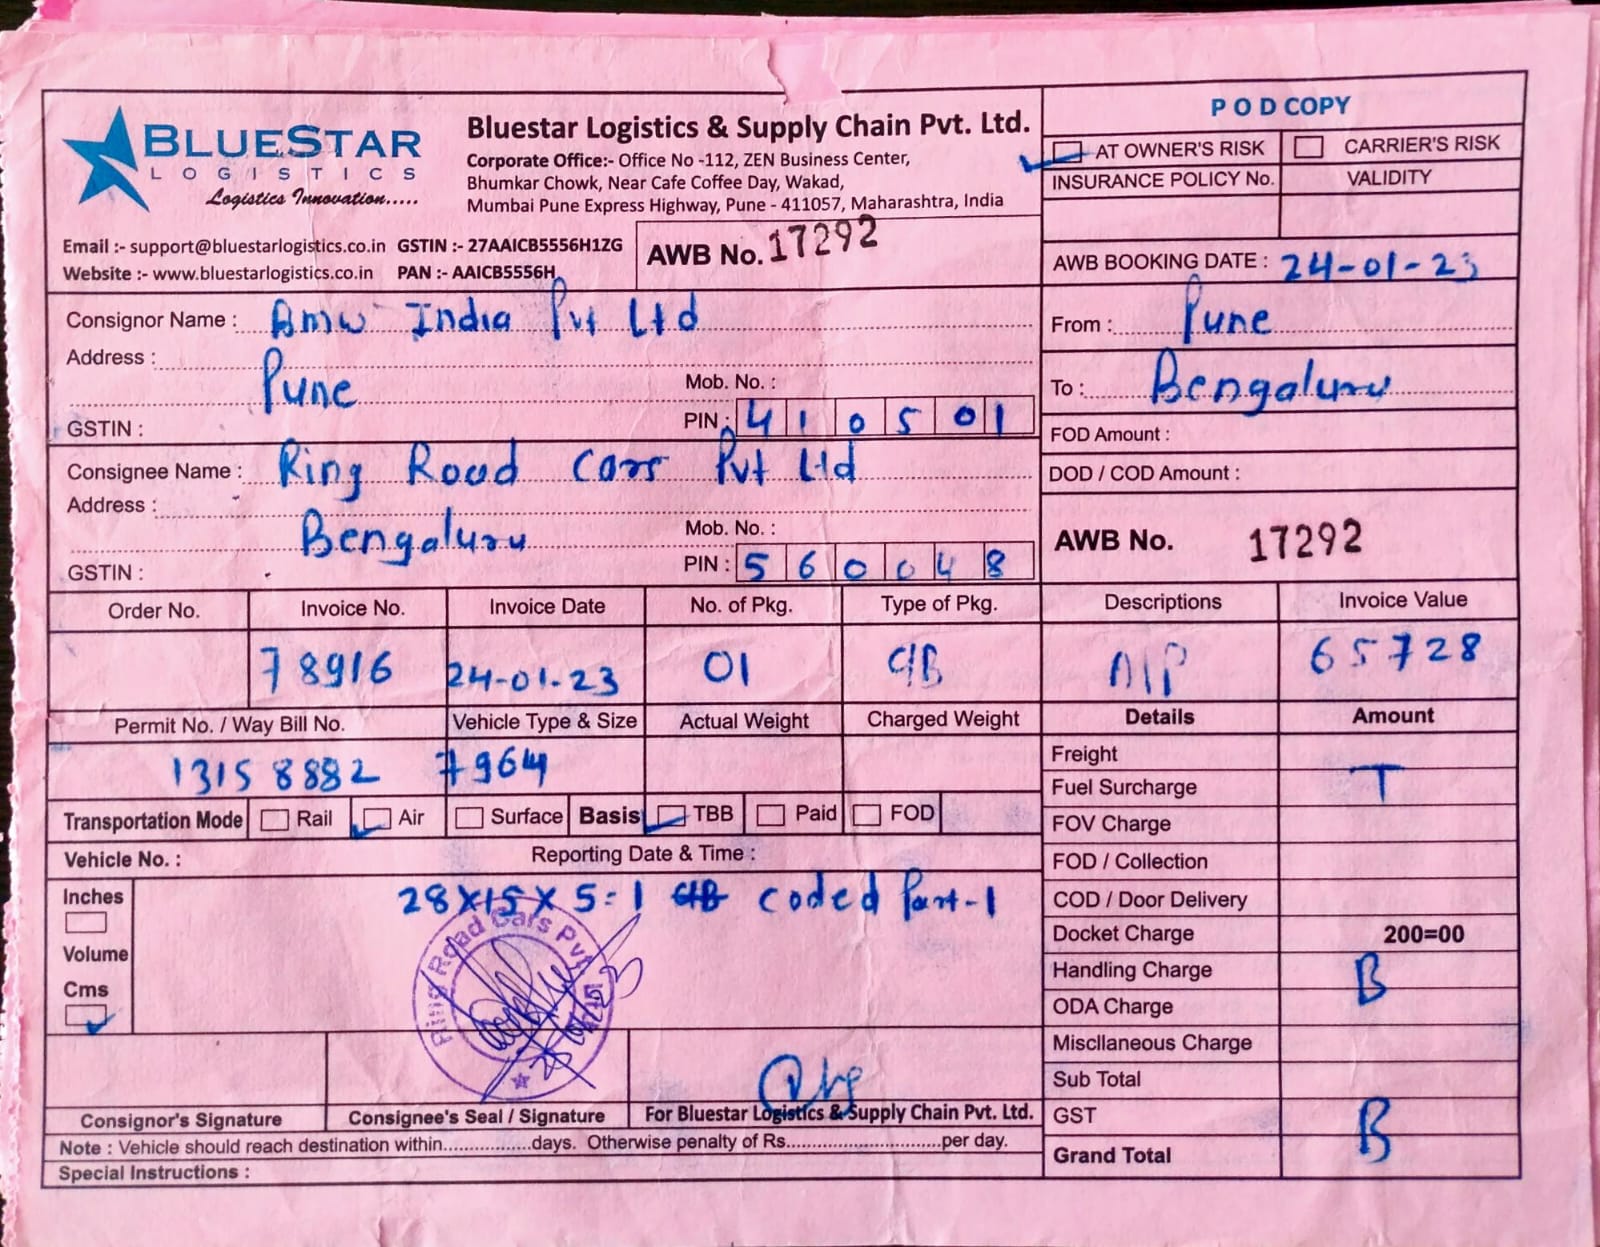 BLUESTAR
LOGISTICS
Logistics Innovation.....
Bluestar Logistics & Supply Chain Pvt. Ltd.
Corporate Office:- Office No -112, ZEN Business Center,
Bhumkar Chowk, Near Cafe Coffee Day, Wakad,
Mumbai Pune Express Highway, Pune - 411057, Maharashtra, India
Email :- support@bluestarlogistics.co.in GSTIN :- 27AAICB5556H1ZG
Website :- www.bluestarlogistics.co.in PAN :- AAICB5556H
AWB No. 17292
POD COPY
AT OWNER'S RISK CARRIER'S RISK
INSURANCE POLICY No. VALIDITY
AWB BOOKING DATE : 24-01-23
Consignor Name : Bmw India Pvt Ltd
Address :
Pune
Mob. No. :
GSTIN : PIN : 410501
From : Pune
To : Bengaluru
FOD Amount :
DOD / COD Amount :
Consignee Name : Ring Road Cars Pvt Ltd
Address :
Bengaluru
Mob. No. :
GSTIN : PIN : 560048
AWB No. 17292
Order No. Invoice No. Invoice Date No. of Pkg. Type of Pkg. Descriptions Invoice Value
78916 24-01-23 01 CIB AIP 65728
Permit No. / Way Bill No. Vehicle Type & Size Actual Weight Charged Weight Details Amount
13158882 7964
Transportation Mode Rail Air Surface Basis TBB Paid FOD
Vehicle No. : Reporting Date & Time :
Inches
Volume
Cms
28x15x5=1 CIB coded Part-1
Ring Road Cars Pvt. Ltd.
Freight
Fuel Surcharge T
FOV Charge
FOD / Collection
COD / Door Delivery
Docket Charge 200=00
Handling Charge B
ODA Charge
Miscllaneous Charge
Sub Total
GST B
Grand Total
Consignor's Signature Consignee's Seal / Signature For Bluestar Logistics & Supply Chain Pvt. Ltd.
Note : Vehicle should reach destination within...............days. Otherwise penalty of Rs...........................per day.
Special Instructions :